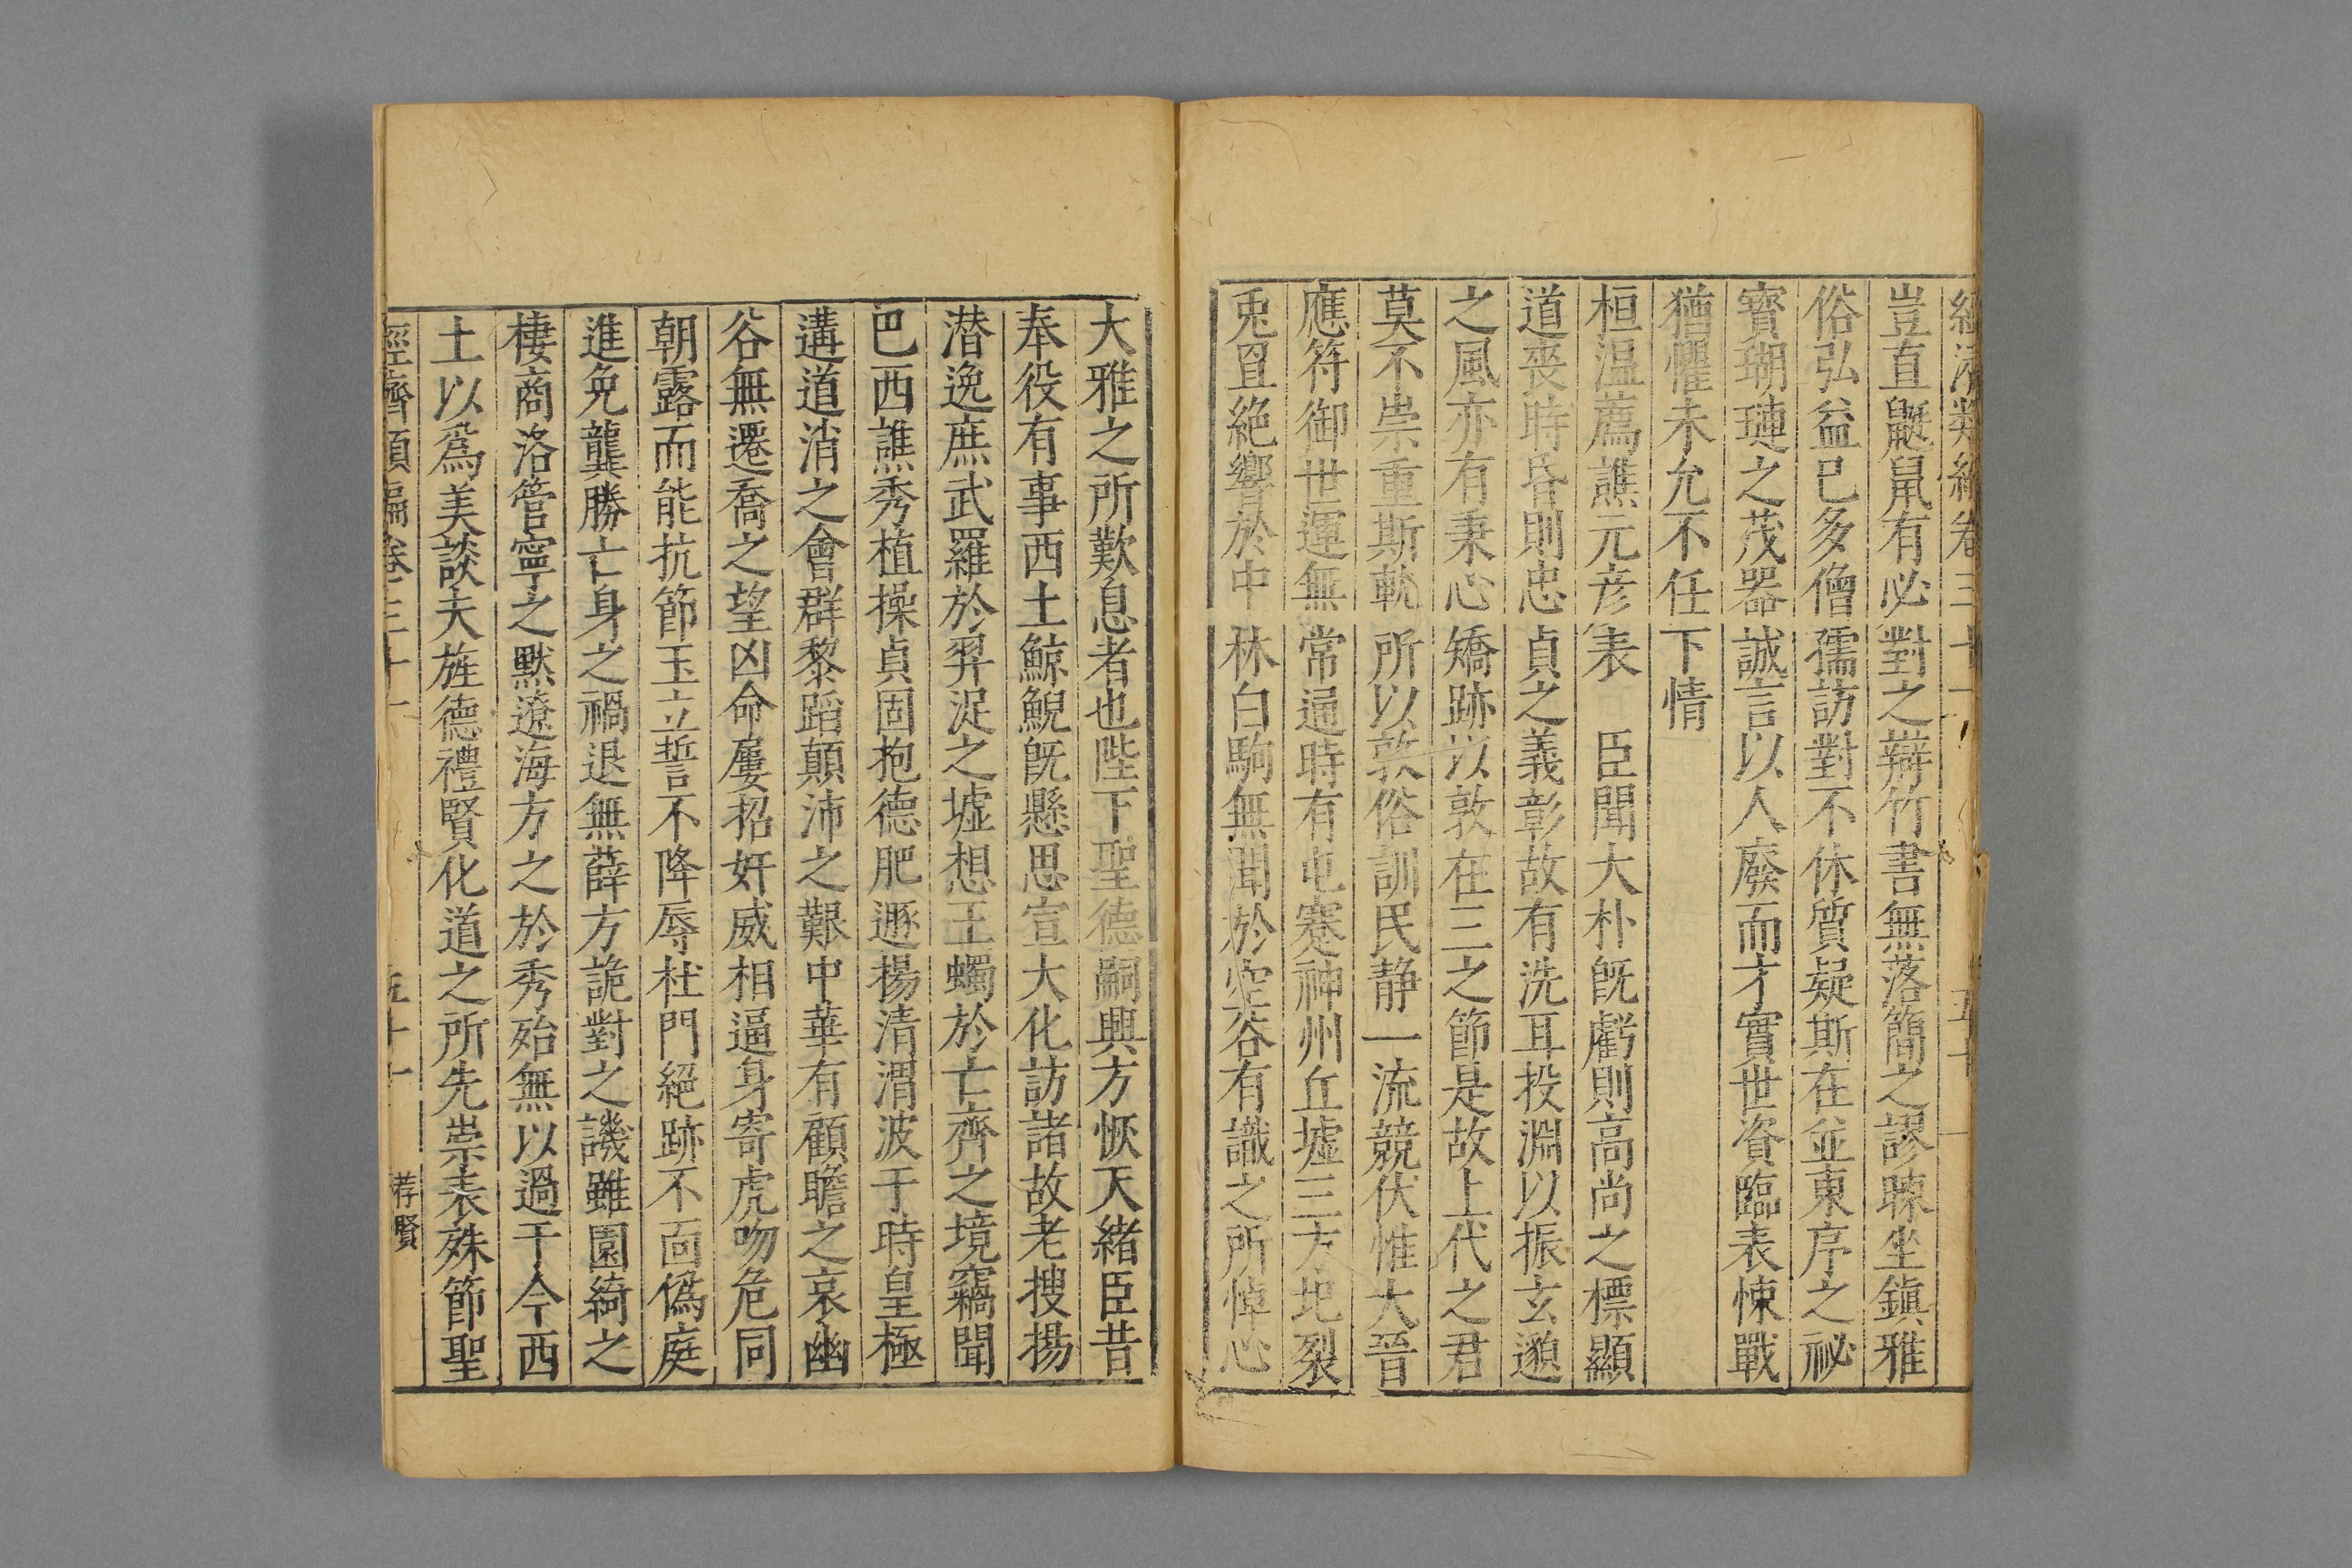 經濟類編卷三十一 五十
豈直鼮鼠有必對之辯竹書無落簡之謬暕坐鎮雅
俗弘益已多僧孺訪對不休質疑斯在並東序之祕
寶瑚璉之茂器誠言以人廢而才實世資臨表悚戰
猶懼未允不任下情
桓温薦譙元彦表 臣聞大朴旣虧則高尚之標顯
道喪時昏則忠貞之義彰故有洗耳投淵以振玄邈
之風亦有秉心矯跡以敦在三之節是故上代之君
莫不崇重斯軌所以敦俗訓民静一流競伏惟大晉
應符御世運無常通時有屯蹇神州丘墟三方圯裂
兎罝絶響於中林白駒無聞於空谷有識之所悼心
大雅之所歎息者也陛下聖德嗣興方恢天緒臣昔
奉役有事西土鯨鯢旣懸思宣大化訪諸故老搜揚
潜逸庶武羅於羿浞之墟想王蠋於亡齊之境竊聞
巴西譙秀植操貞固抱德肥遯揚清渭波于時皇極
遘道消之會群黎蹈顛沛之艱中華有顧瞻之哀幽
谷無遷喬之望凶命屢招奸威相逼身寄虎吻危同
朝露而能抗節玉立誓不降辱杜門絕跡不面僞庭
進免龔勝亡身之禍退無薛方詭對之譏雖園綺之
棲商洛管寧之默遼海方之於秀殆無以過于今西
土以爲美談夫旌德禮賢化道之所先崇表殊節聖
經濟類編卷三十一 五十一 荐賢